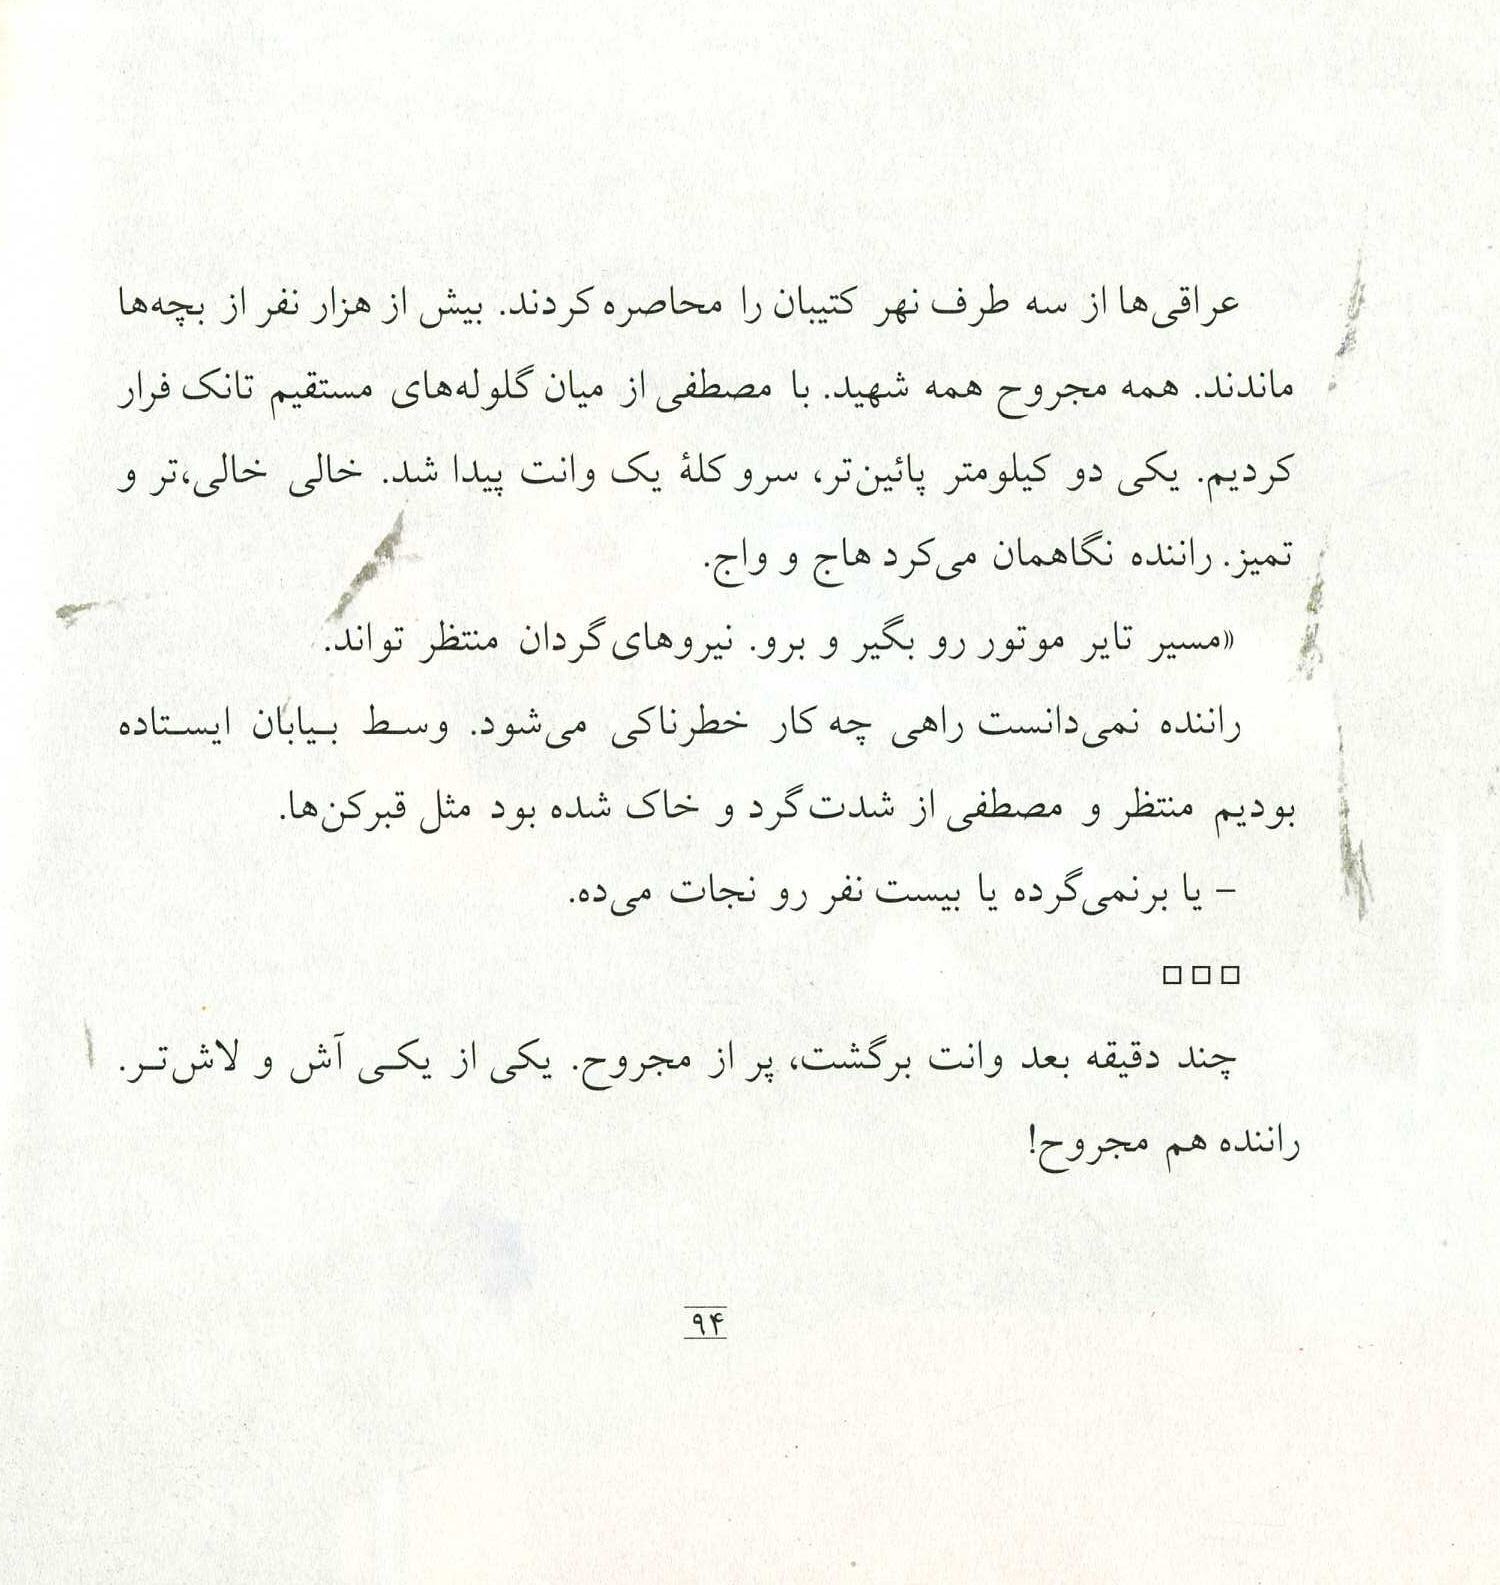 عراقی‌ها از سه طرف نهر کتیبان را محاصره کردند. بیش از هزار نفر از بچه‌ها
ماندند. همه مجروح همه شهید. با مصطفی از میان گلوله‌های مستقیم تانک فرار
کردیم. یکی دو کیلومتر پائین‌تر، سر و کلهٔ یک وانت پیدا شد. خالی خالی،تر و
تمیز. راننده نگاهمان می‌کرد هاج و واج.
«مسیر تایر موتور رو بگیر و برو. نیروهای گردان منتظر تواند.
راننده نمی‌دانست راهی چه کار خطرناکی می‌شود. وسط بیابان ایستاده
بودیم منتظر و مصطفی از شدت گرد و خاک شده بود مثل قبرکن‌ها.
– یا برنمی‌گرده یا بیست نفر رو نجات می‌ده.
□□□
چند دقیقه بعد وانت برگشت، پر از مجروح. یکی از یکی آش و لاش‌تر.
راننده هم مجروح!
۹۴